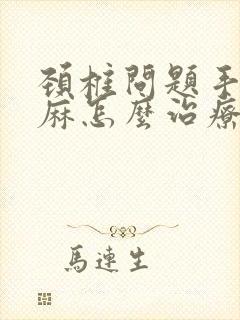 頸椎問題手
麻怎麼治療
馬連生